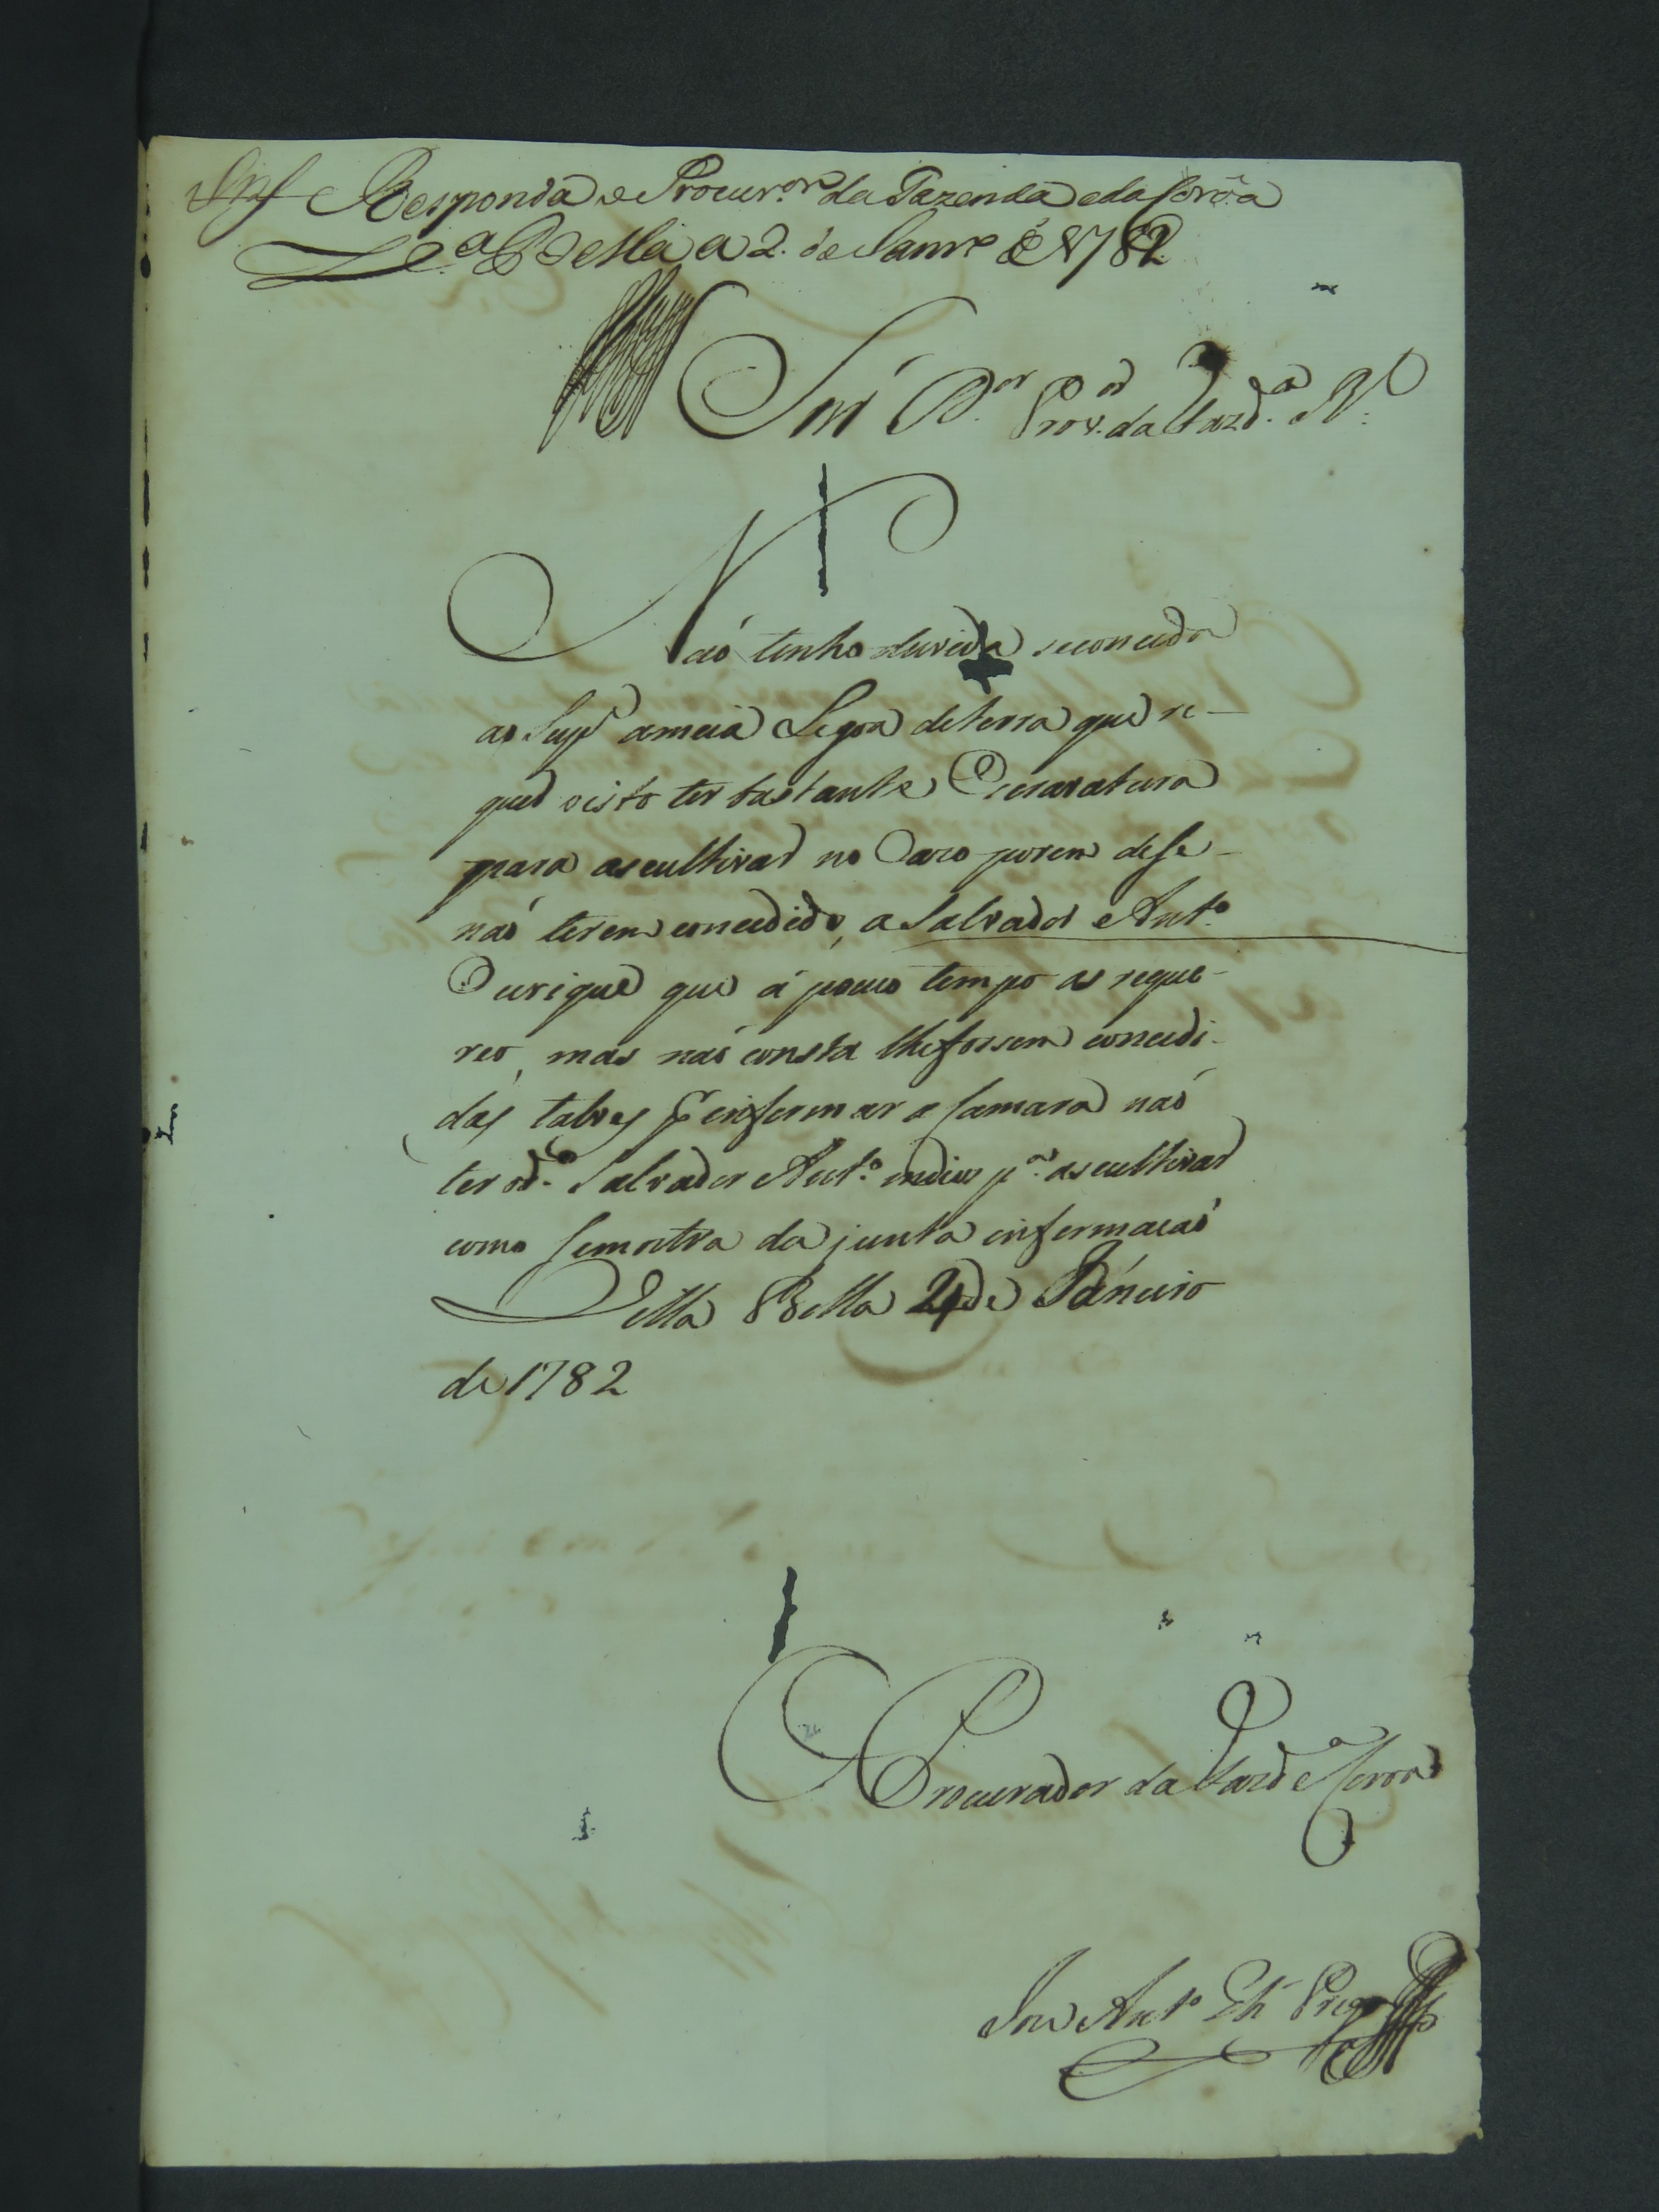 Responda o Procur.or da Fazenda e da Corôa
V.a Bella a 2. de Janr.o de 1782
Snr' D.or Prov.or da Fazd.a R.l
Naó tenho duvida se conceda
ao Sup.e a meia Legoa de terra que re-
quer visto ter bastante Escravatura
para as cultivar no Cazo porem de se
naó terem concedido, a Salvador Ant.o
Ourique que á pouco tempo as reque-
reo, mas naó consta lhe fossem concedi-
das talves p.r informar a Camara naó
ter o d.o Salvador Ant.o indios p.a as cultivar
como se mostra da junta informacaó
Villa Bella 24 de Janeiro
de 1782
O Procurador da Fazd.a e Coroa
Ant.o